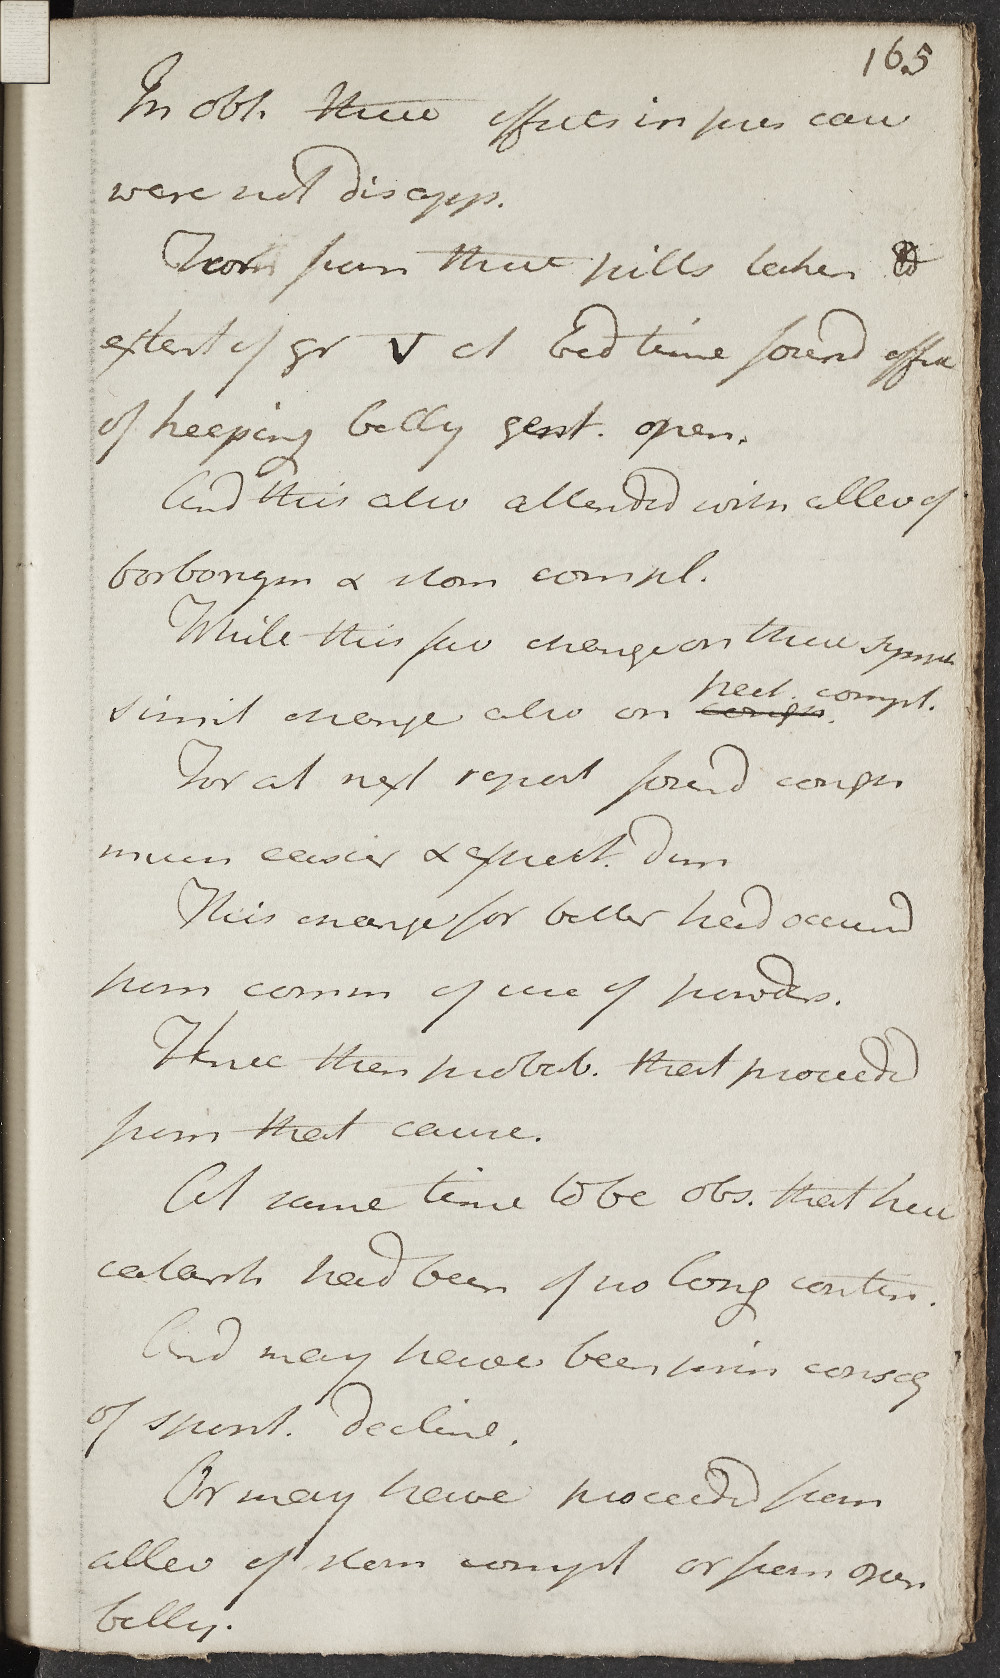 165
In obt. these effects in pres case
were not disapp.
For from these pills taken to
extent of gr V at Bed time found effect
of keeping belly gent. open.
And this also attended with allev of
borborygm & stom compl.
While this fav change on these sympt
simil change also on cough. pect. compl.
For at next report found cough
much easier & expect. dim
This change for better had occurred
from comm of use of powders.
Hence then probab. that proceeded
from that cause.
At same time to be obs. that here
catarrh had been of no long contin.
And may have been prin conseq
of spont. decline.
Or may have proceeded from
allev of stom compl or from open
belly.